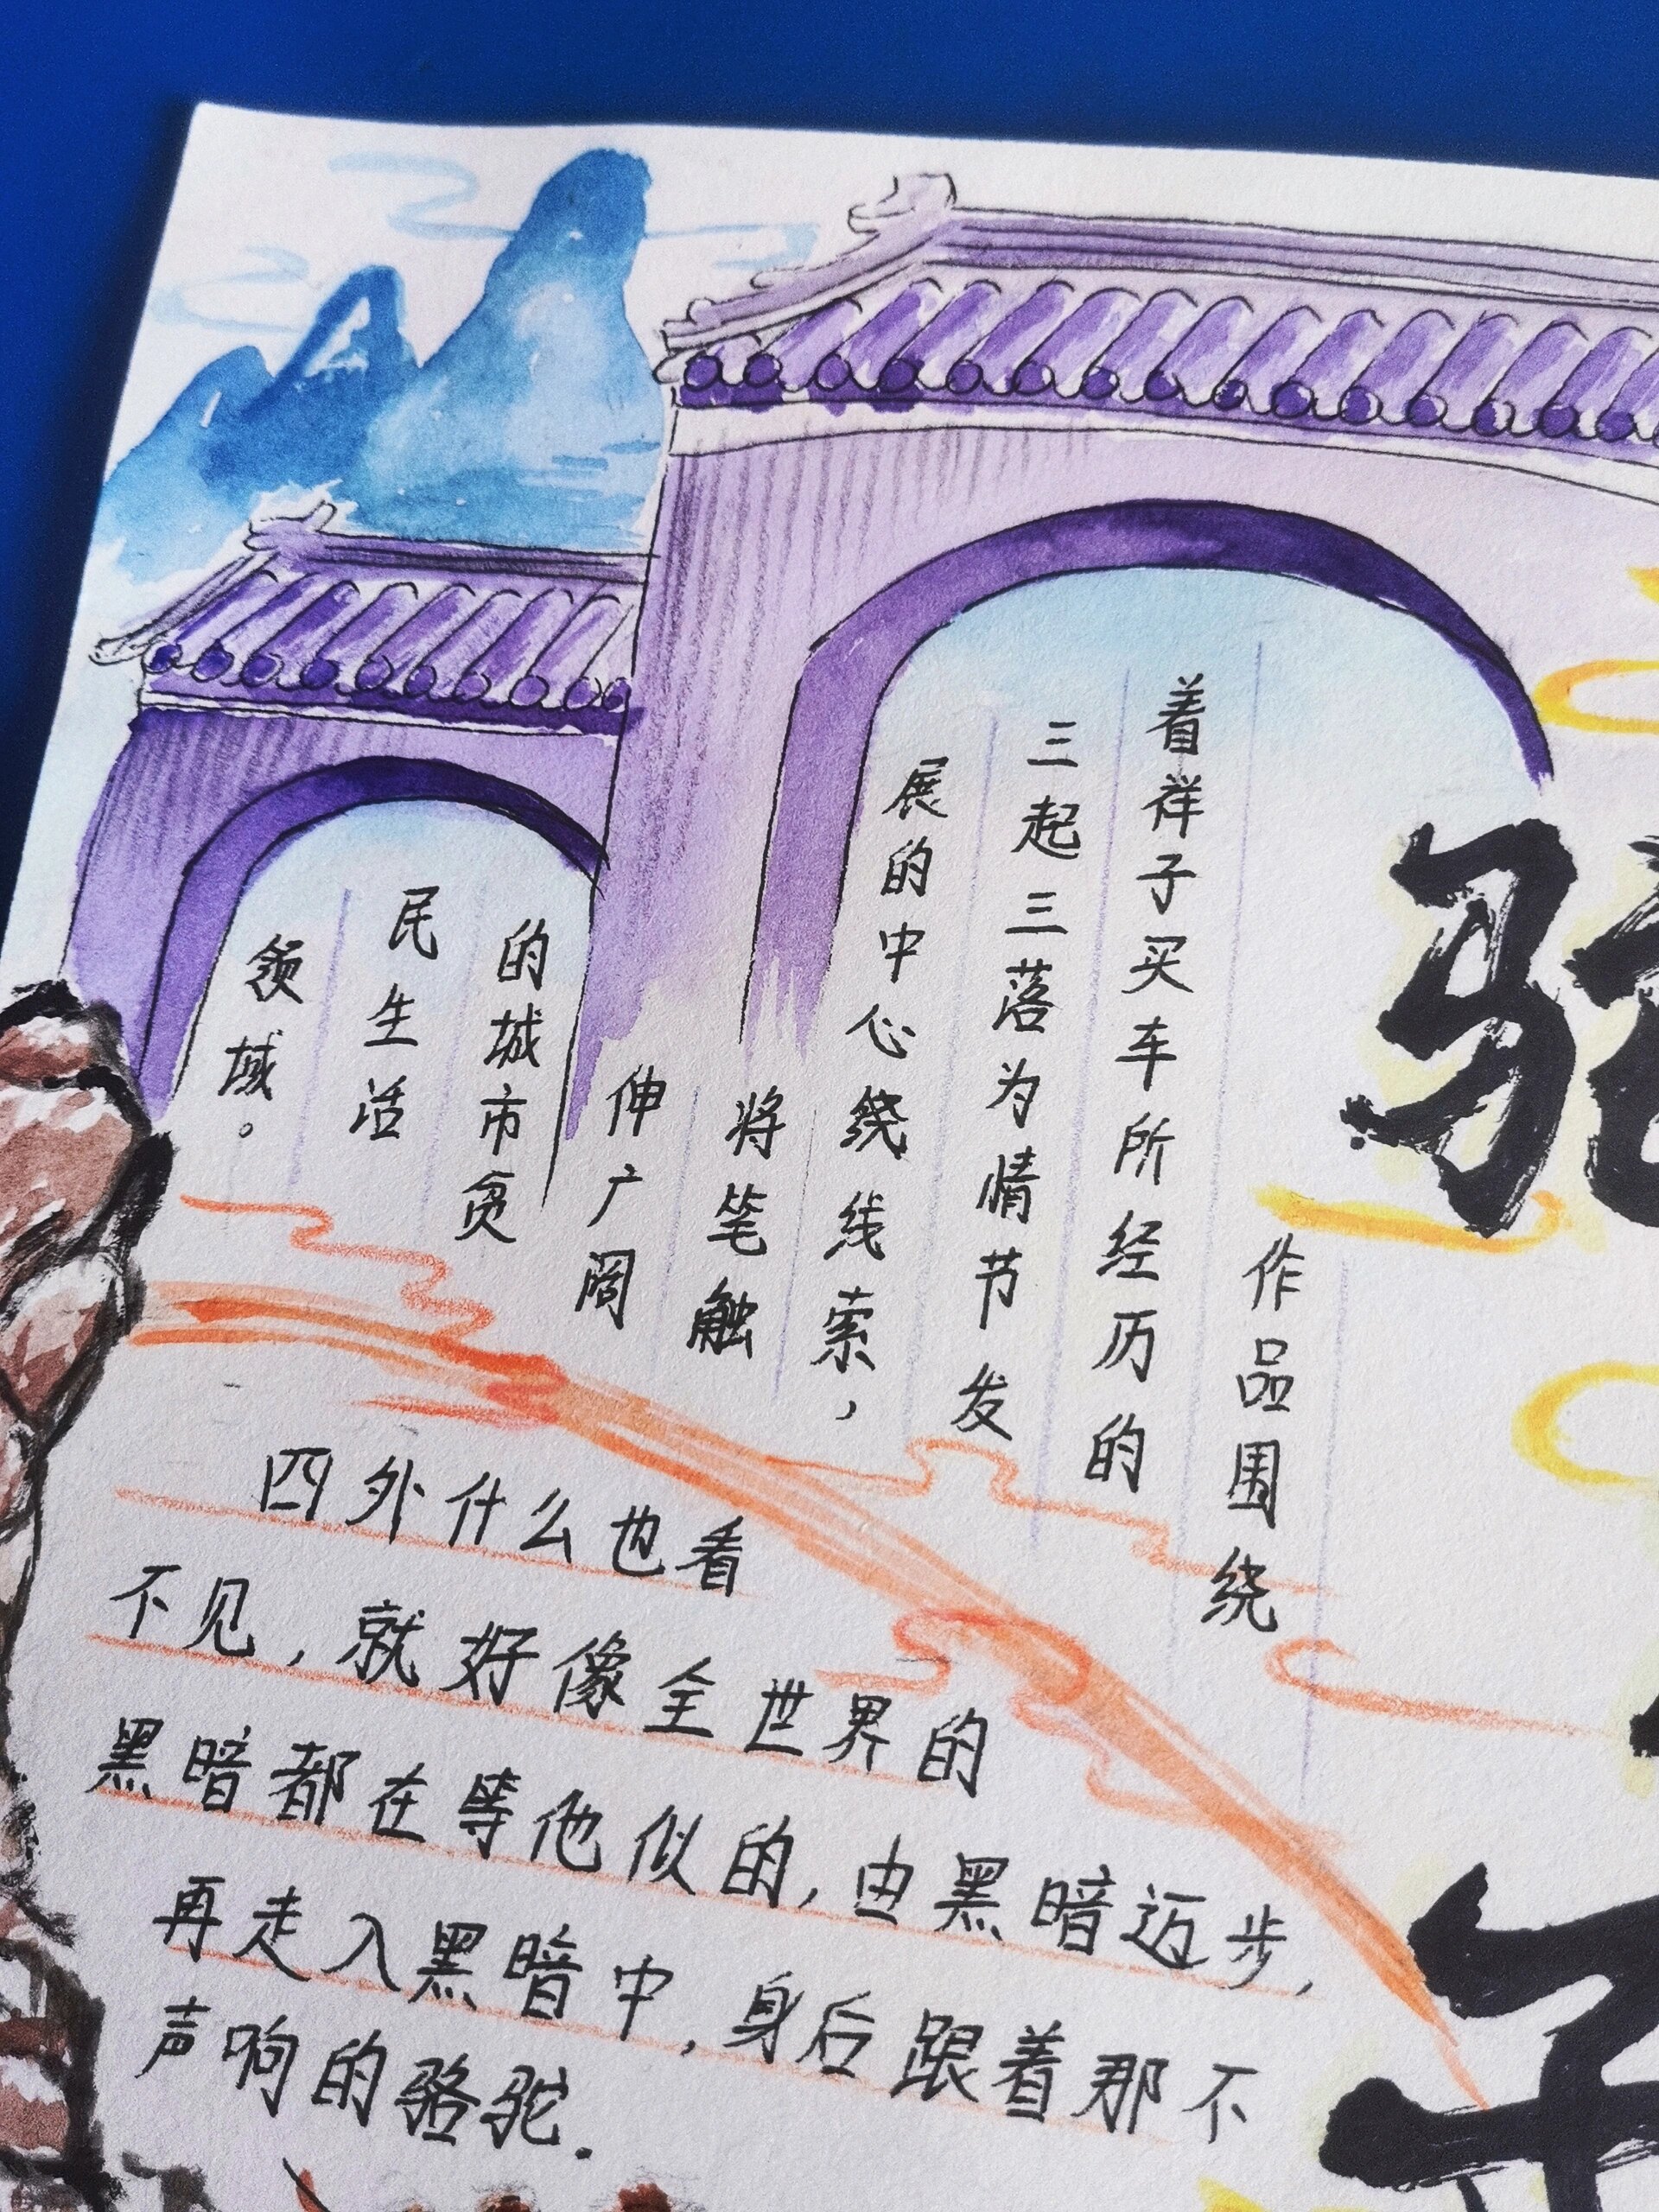 作品围绕
着祥子买车所经历的
三起三落为情节发
展的中心绕线索，
将笔触
伸广阔
的城市贫
民生活
领域。
四外什么也看
不见，就好像全世界的
黑暗都在等他似的，由黑暗迈步，
再走入黑暗中，身后跟着那不
声响的骆驼.
子